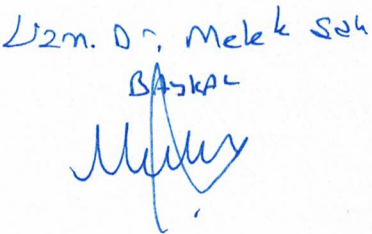 Uzm. Dr. Melek Şah
BAYKAL